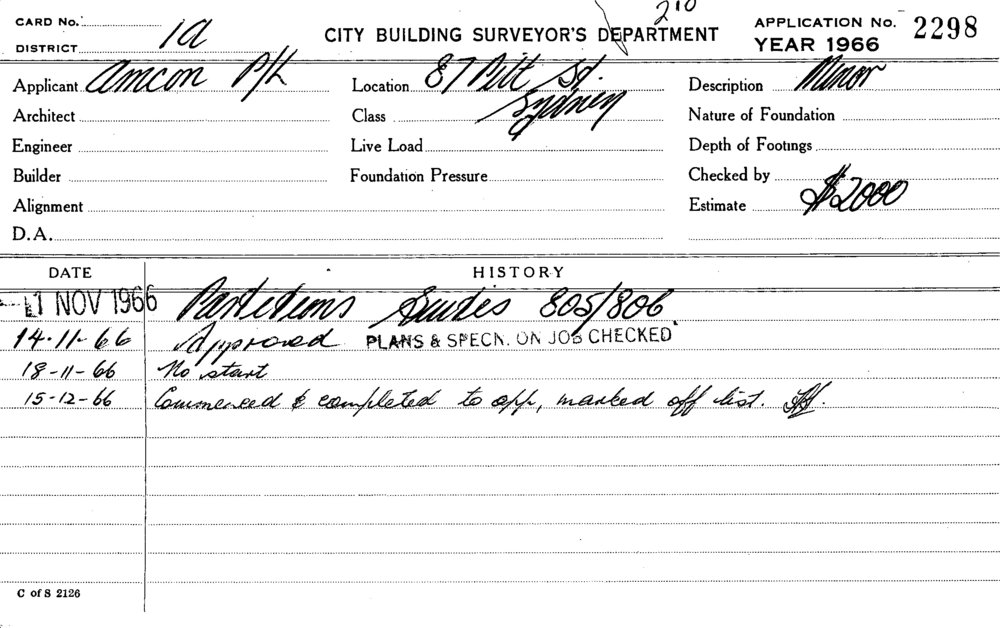 210
CARD No.
APPLICATION No. 2298
DISTRICT 1a
CITY BUILDING SURVEYOR'S DEPARTMENT
YEAR 1966
Applicant Amcon P/L
Location 87 Pitt St.
Description Minor
Architect
Class Sydney
Nature of Foundation
Engineer
Live Load
Depth of Footings
Builder
Foundation Pressure
Checked by
Alignment
Estimate $2000
D.A.
DATE HISTORY
1 NOV 1966 Partitions Suites 805/806
14-11-66 Approved PLANS & SPECN. ON JOB CHECKED
18-11-66 No start
15-12-66 Commenced & completed to app, marked off list.
C of S 2126